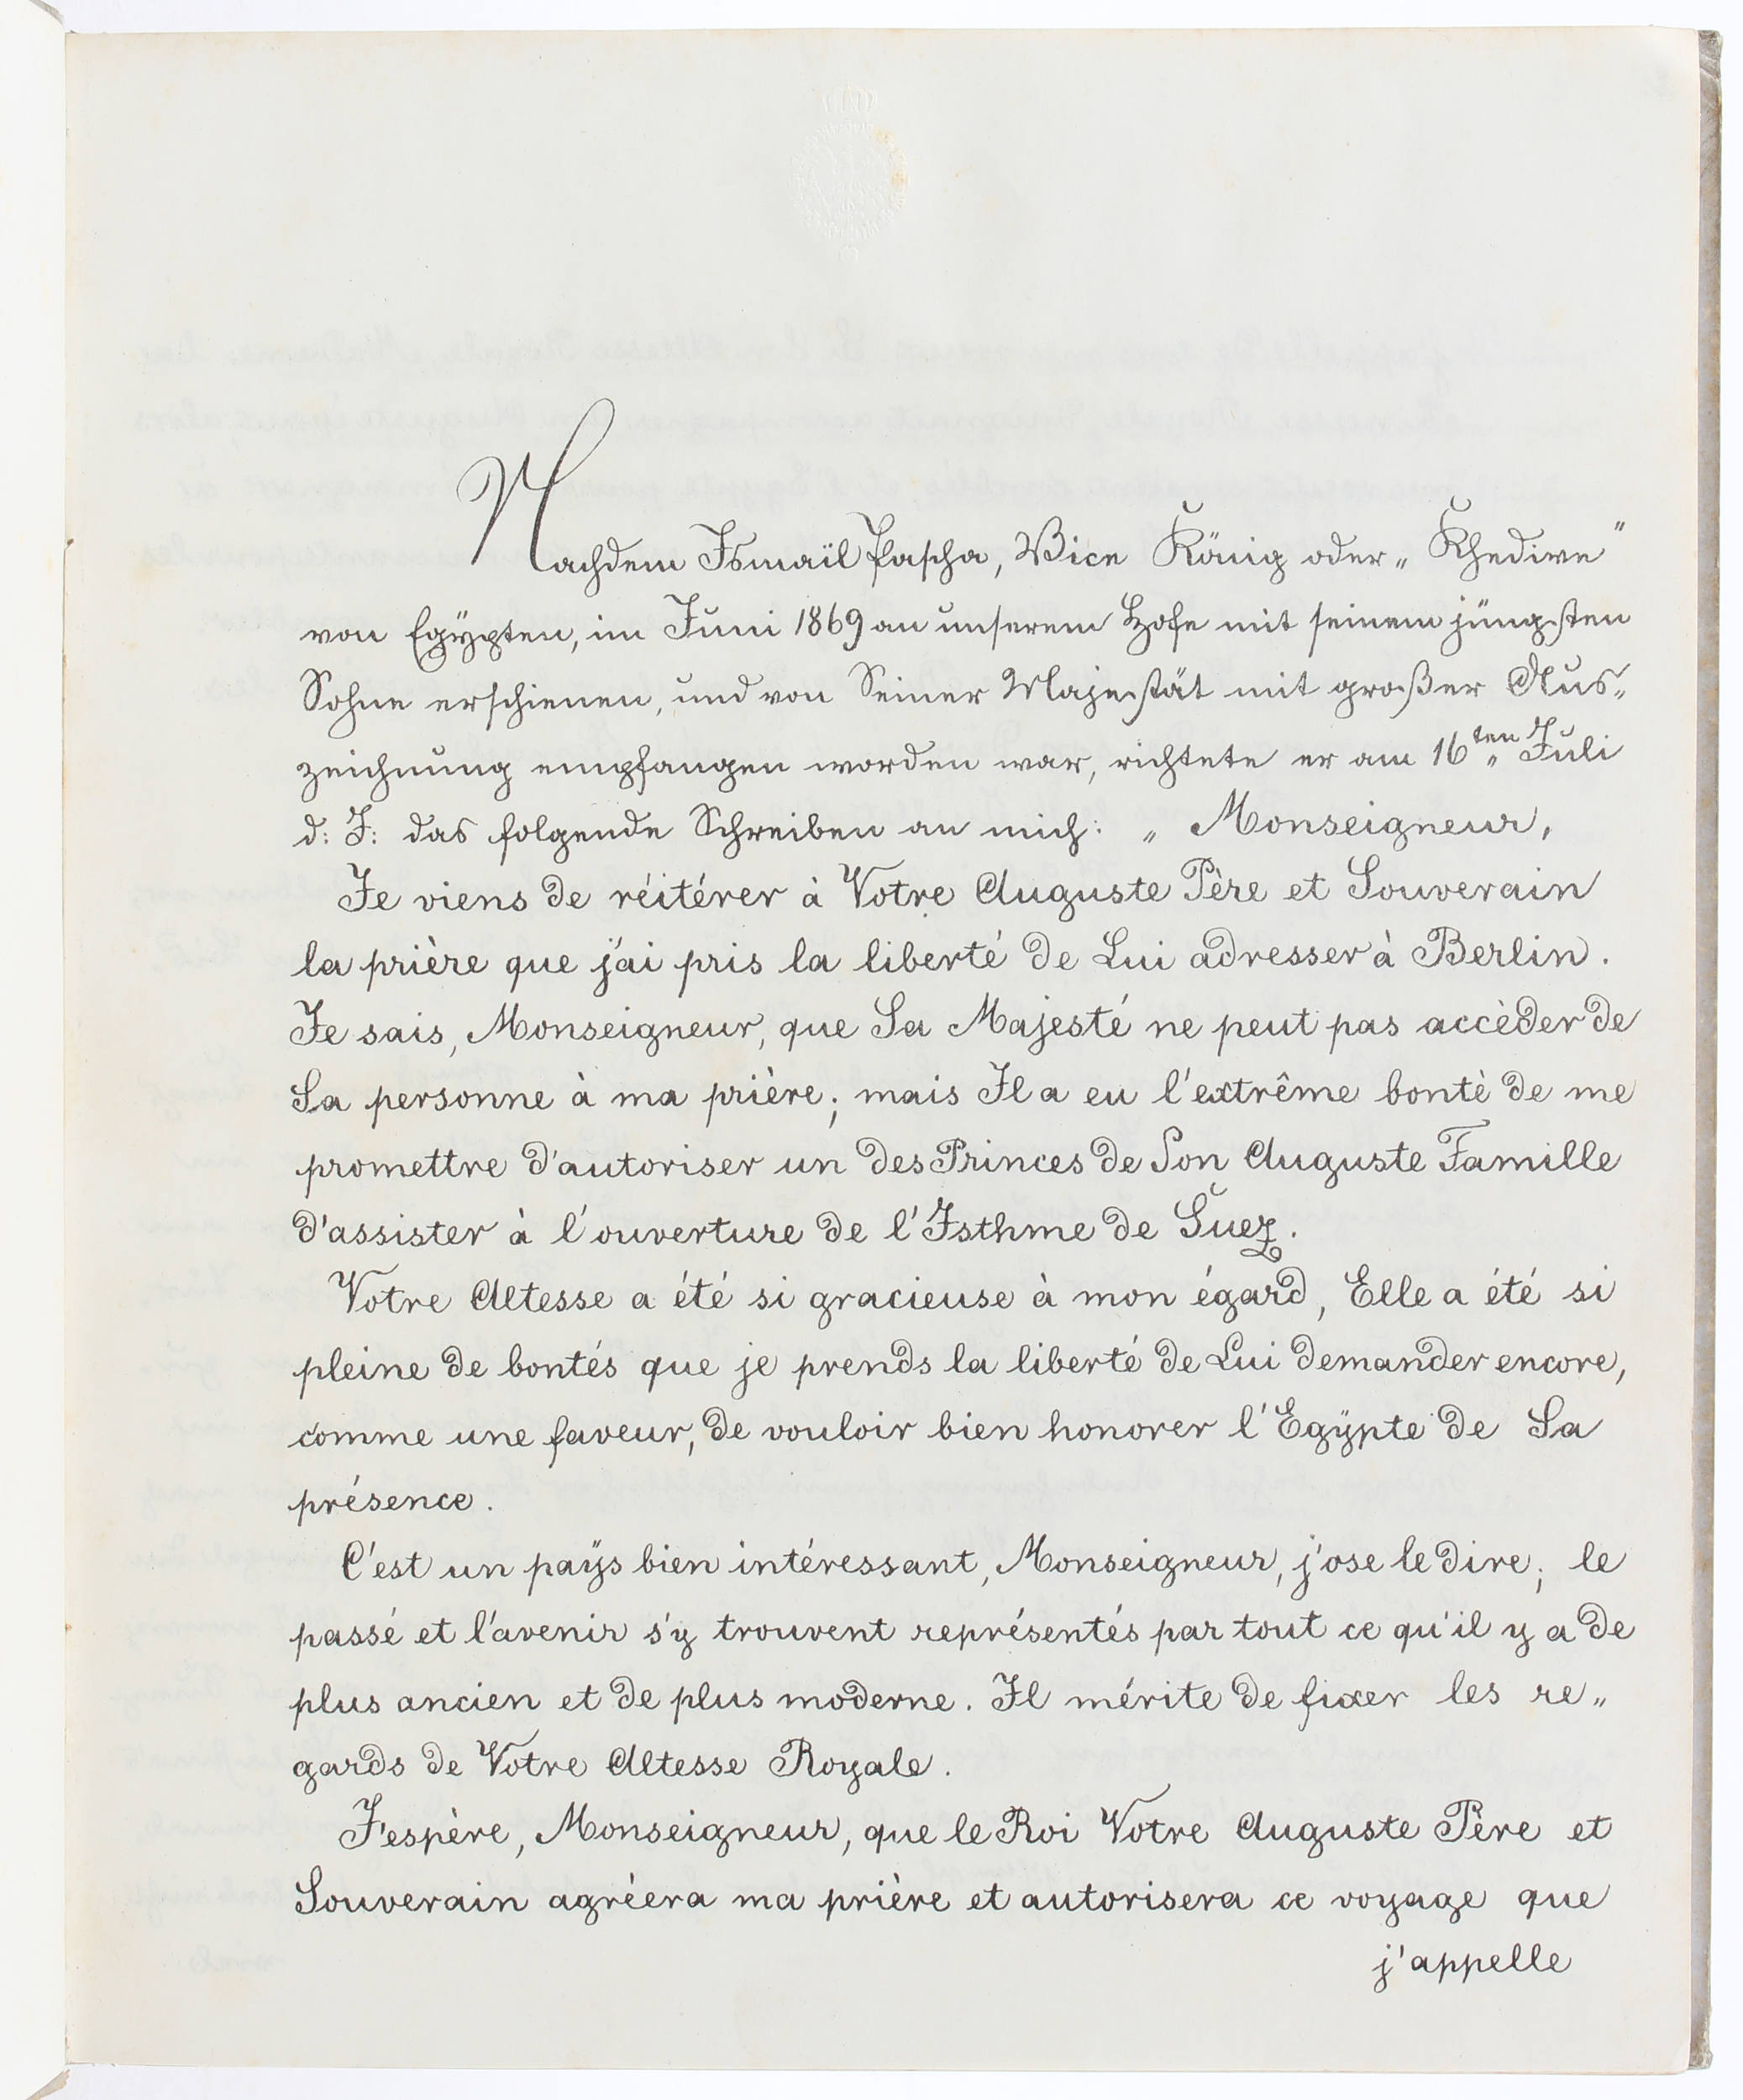 Nachdem Ismaïl Pascha, Vice König oder „Khedive“
von Egÿpten, im Juni 1869 an unserem Hofe mit seinem jüngsten
Sohne erschienen, und von Seiner Majestät mit großer Aus„
zeichnung empfangen worden war, richtete er am 16ten„ Juli
d: J: das folgende Schreiben an mich: „Monseigneur,
Je viens de réitérer à Votre Auguste Père et Souverain
la prière que j'ai pris la liberté de Lui adresser à Berlin.
Je sais, Monseigneur, que Sa Majesté ne peut pas accèder de
Sa personne à ma prière; mais Il a eu l'extrême bontè de me
promettre d'autoriser un des Princes de Son Auguste Famille
d'assister à l'ouverture de l'Isthme de Suez.
Votre Altesse a été si gracieuse à mon égard, Elle a été si
pleine de bontés que je prends la liberté de Lui demander encore,
comme une faveur, de vouloir bien honorer l'Egÿpte de Sa
présence.
C'est un paÿs bien intéressant, Monseigneur, j'ose le dire; le
passé et l'avenir s'y trouvent représentés par tout ce qu'il y a de
plus ancien et de plus moderne. Il mérite de fixer les re„
gards de Votre Altesse Royale.
J'espère, Monseigneur, que le Roi Votre Auguste Père et
Souverain agréera ma prière et autorisera ce voyage que
j'appelle